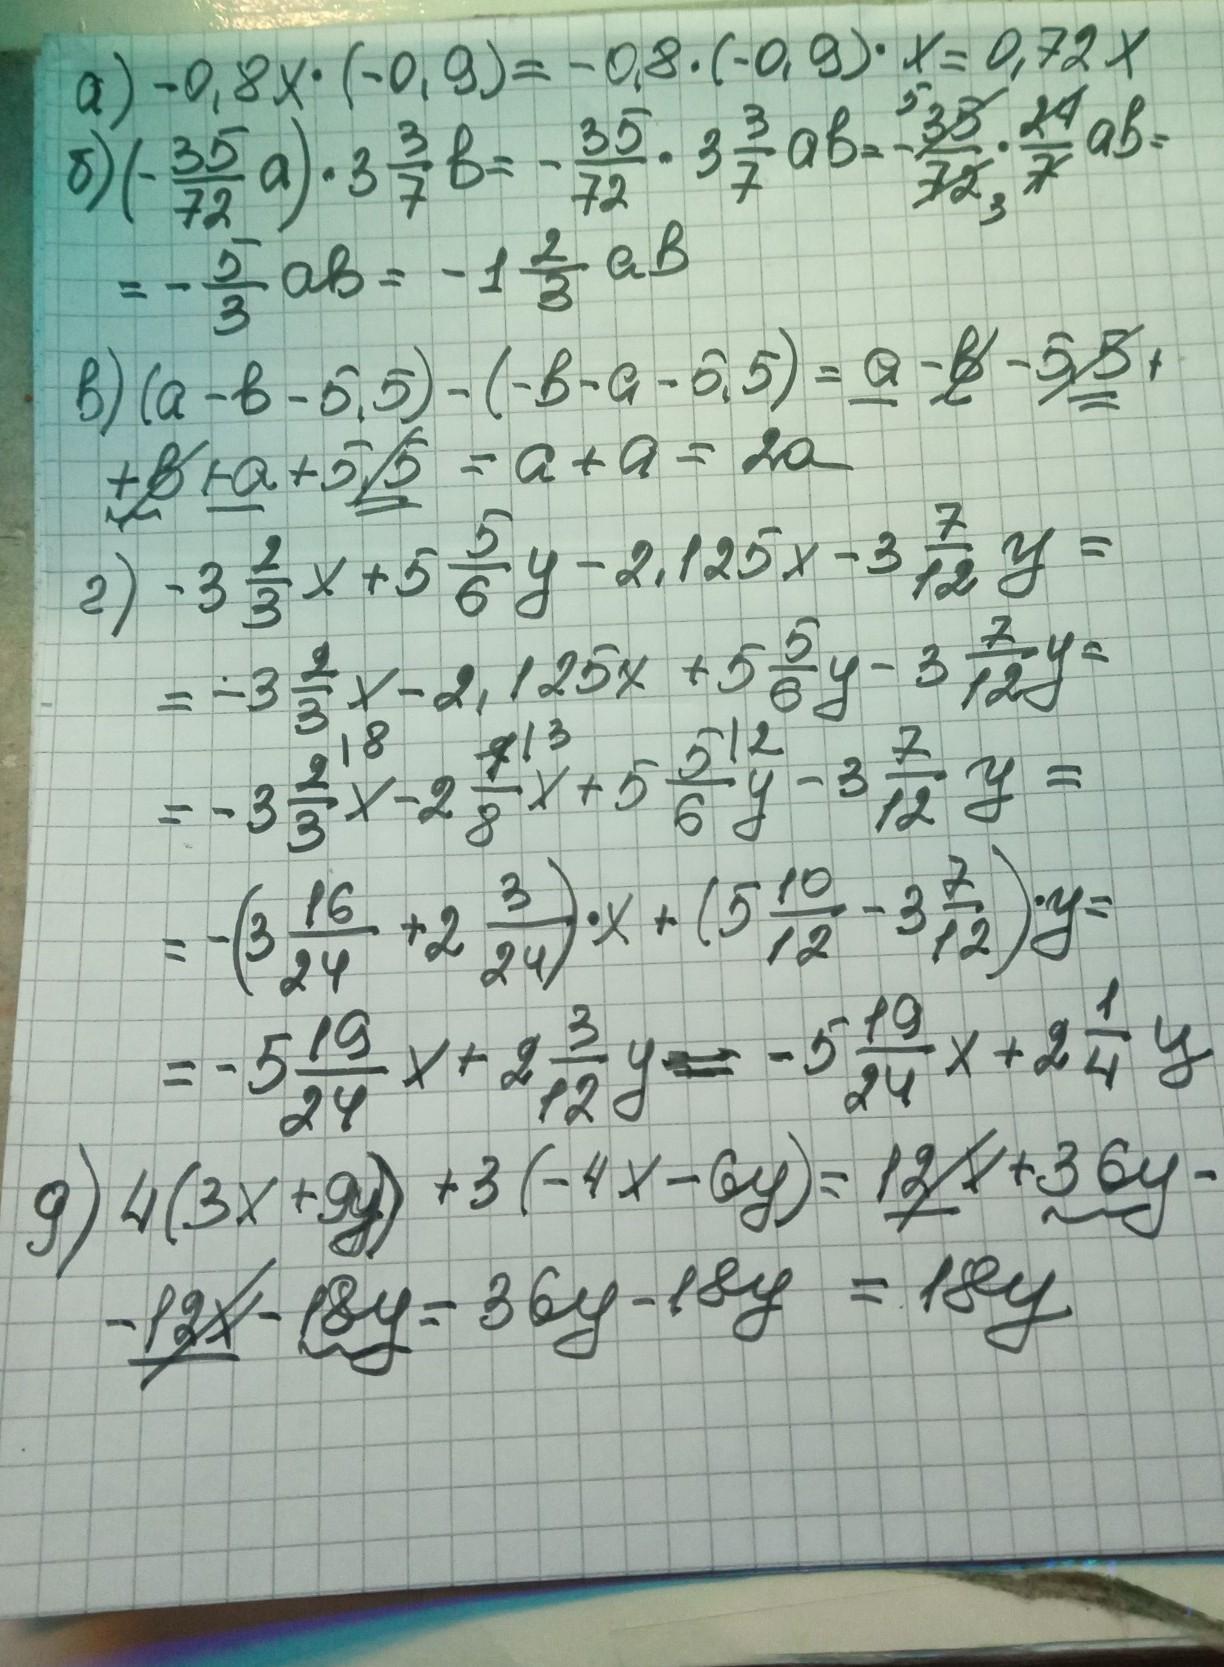 а) -0,8x·(-0,9)= -0,8·(-0,9)·x= 0,72x
б) (-35/72 a)·3 3/7 в= -35/72·3 3/7 aв= -35/72·24/7 aв= 5 3
= -5/3 aв= -1 2/3 aв
в) (a-в-5,5)-(-в-a-5,5)= a-в-5,5+
+в+a+5,5 = a+a= 2a
г) -3 2/3 x+5 5/6 y-2,125x-3 7/12 y=
= -3 2/3 x-2,125x+5 5/6 y-3 7/12 y=
= -3 2/3 |8 x-2 1/8 |3 x+5 5/6 |2 y-3 7/12 y=
= -(3 16/24+2 3/24)·x+(5 10/12-3 7/12)·y=
= -5 19/24 x+2 3/12 y= -5 19/24 x+2 1/4 y
д) 4(3x+9y)+3(-4x-6y)= 12x+36y-
-12x-18y= 36y-18y = 18y